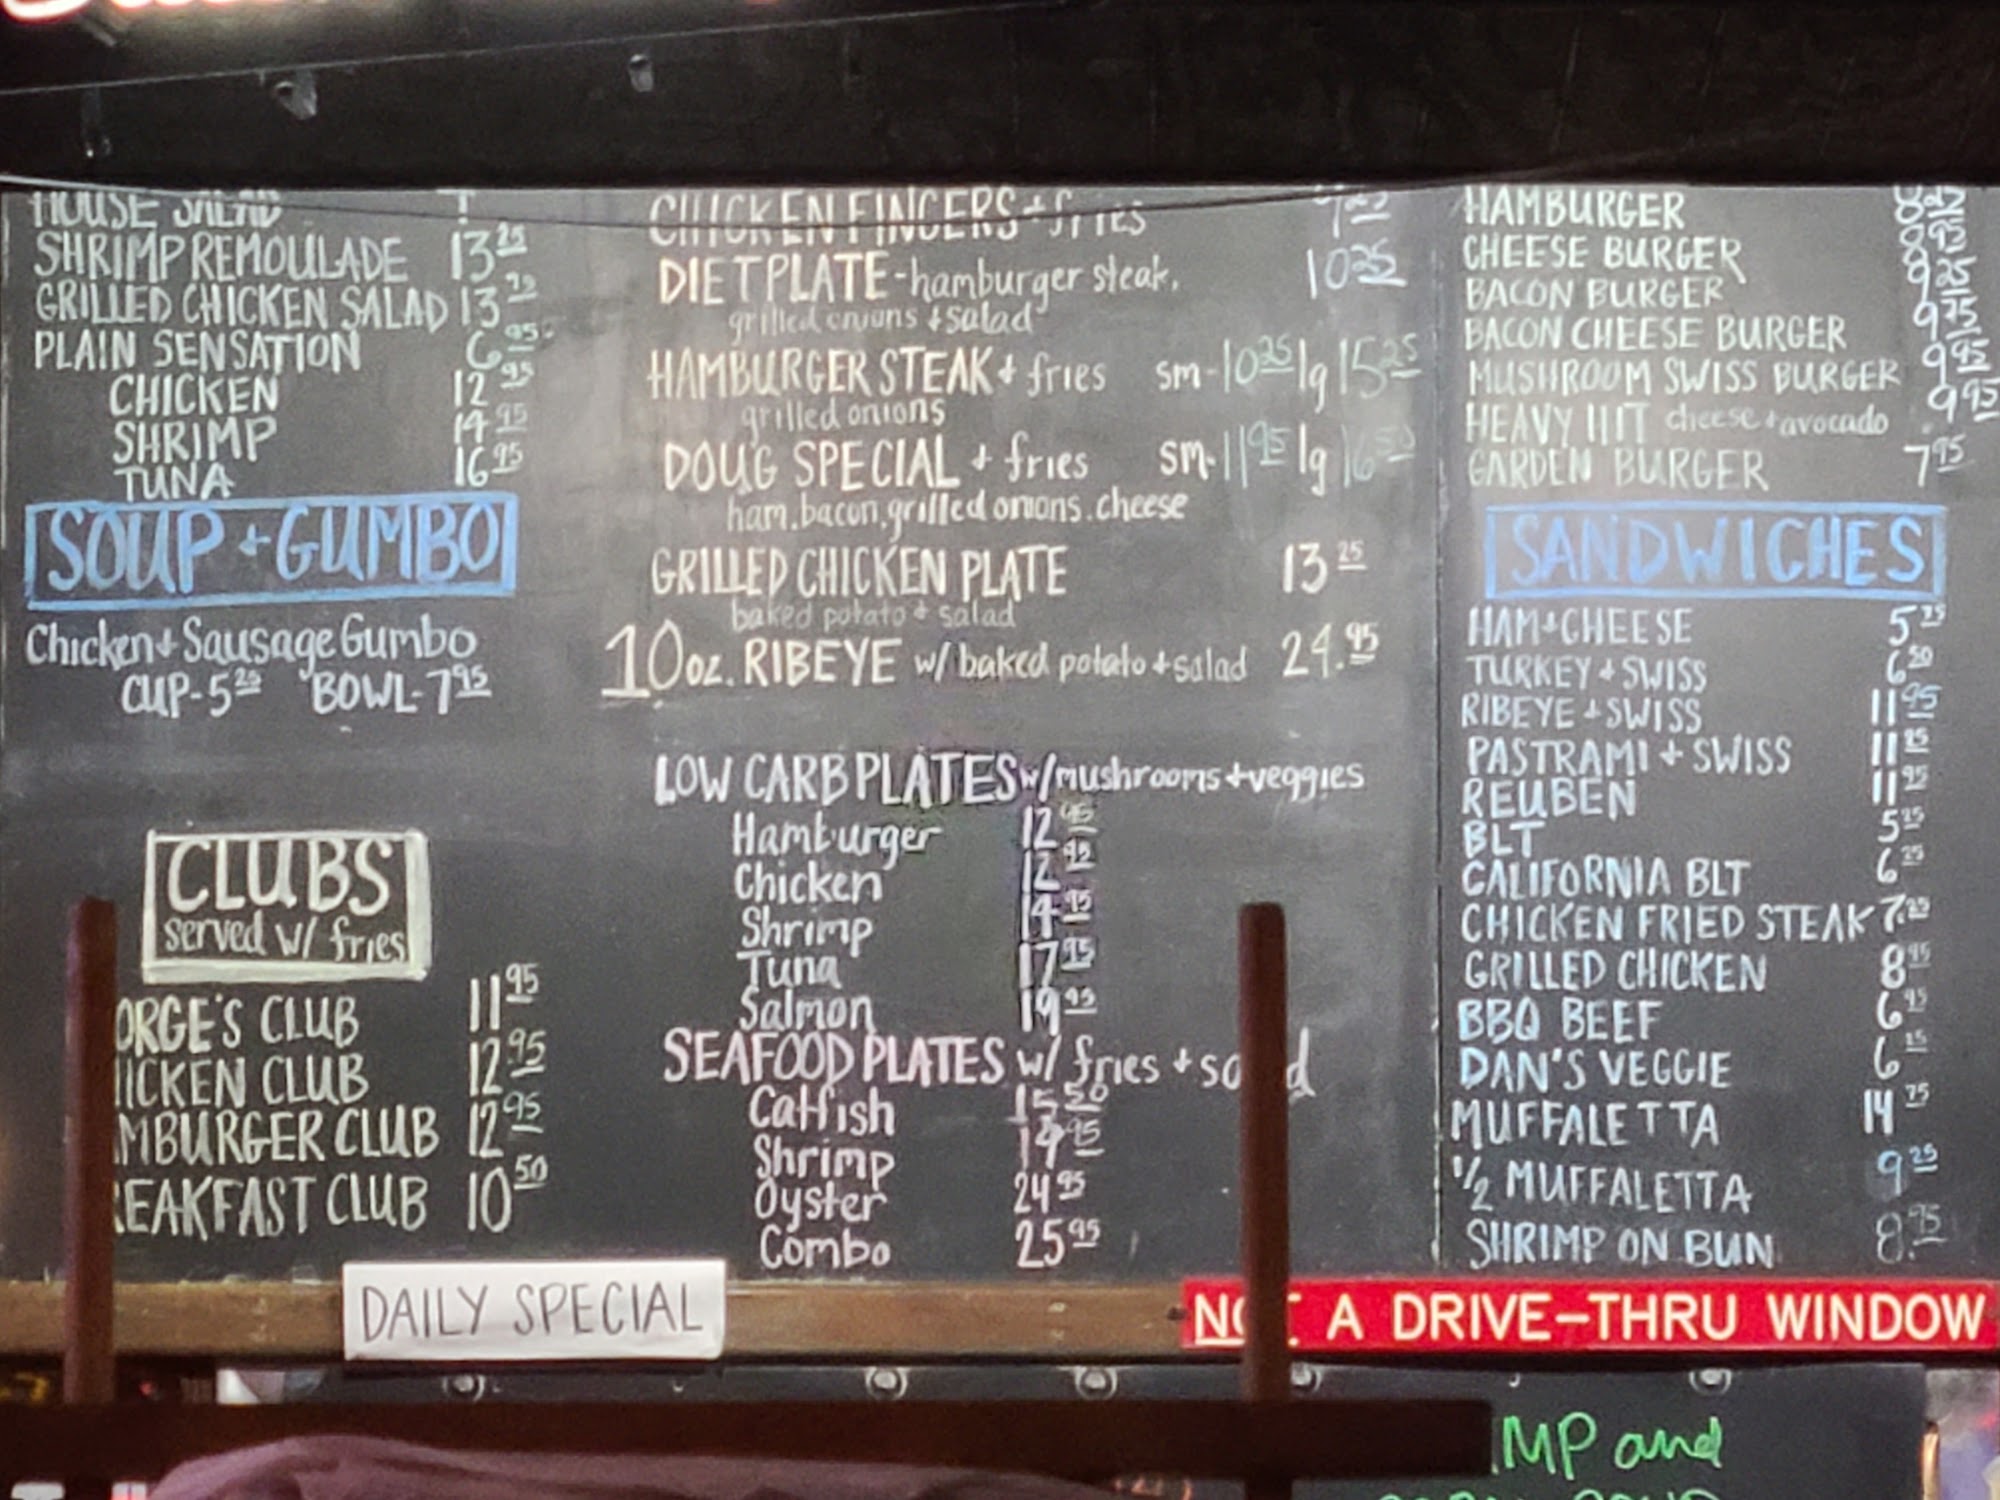 HOUSE SALAD
SHRIMP REMOULADE 13 25
GRILLED CHICKEN SALAD 13
PLAIN SENSATION 6 95
CHICKEN 12 95
SHRIMP 14 95
TUNA 16 95
SOUP + GUMBO
Chicken + Sausage Gumbo
CUP-5 25 BOWL-7 95
CLUBS
served w/ fries
ORGE'S CLUB 11 95
ICKEN CLUB 12 95
MBURGER CLUB 12 95
EAKFAST CLUB 10 50
DAILY SPECIAL
CHICKEN FINGERS + fries 9 25
DIET PLATE - hamburger steak, 10 25
grilled onions + salad
HAMBURGER STEAK + fries sm-10 25 lg 15 25
grilled onions
DOUG SPECIAL + fries sm-11 95 lg 16 50
ham. bacon, grilled onions. cheese
GRILLED CHICKEN PLATE 13 25
baked potato + salad
10 oz. RIBEYE w/ baked potato + salad 24. 95
LOW CARB PLATES w/ mushrooms + veggies
Hamburger 12 95
Chicken 12 95
Shrimp 14 95
Tuna 17 95
Salmon 19 95
SEAFOOD PLATES w/ fries + sa d
Catfish 15 50
Shrimp 14 95
Oyster 24 95
Combo 25 95
HAMBURGER 8 25
CHEESE BURGER 8 95
BACON BURGER 9 25
BACON CHEESE BURGER 9 75
MUSHROOM SWISS BURGER 9 95
HEAVY HIT cheese + avocado 9 95
GARDEN BURGER 7 95
SANDWICHES
HAM + CHEESE 5
TURKEY + SWISS 6 50
RIBEYE + SWISS 11 95
PASTRAMI + SWISS 11
REUBEN 11 95
BLT 5
CALIFORNIA BLT 6 25
CHICKEN FRIED STEAK 7.
GRILLED CHICKEN 8 95
BBQ BEEF 6 95
DAN'S VEGGIE 6
MUFFALETTA 14 75
1/2 MUFFALETTA 9 25
SHRIMP ON BUN 8. 95
NO A DRIVE-THRU WINDOW
MP and